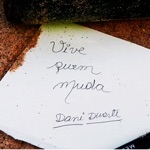 Vive
quem
muda
Dani Duarte